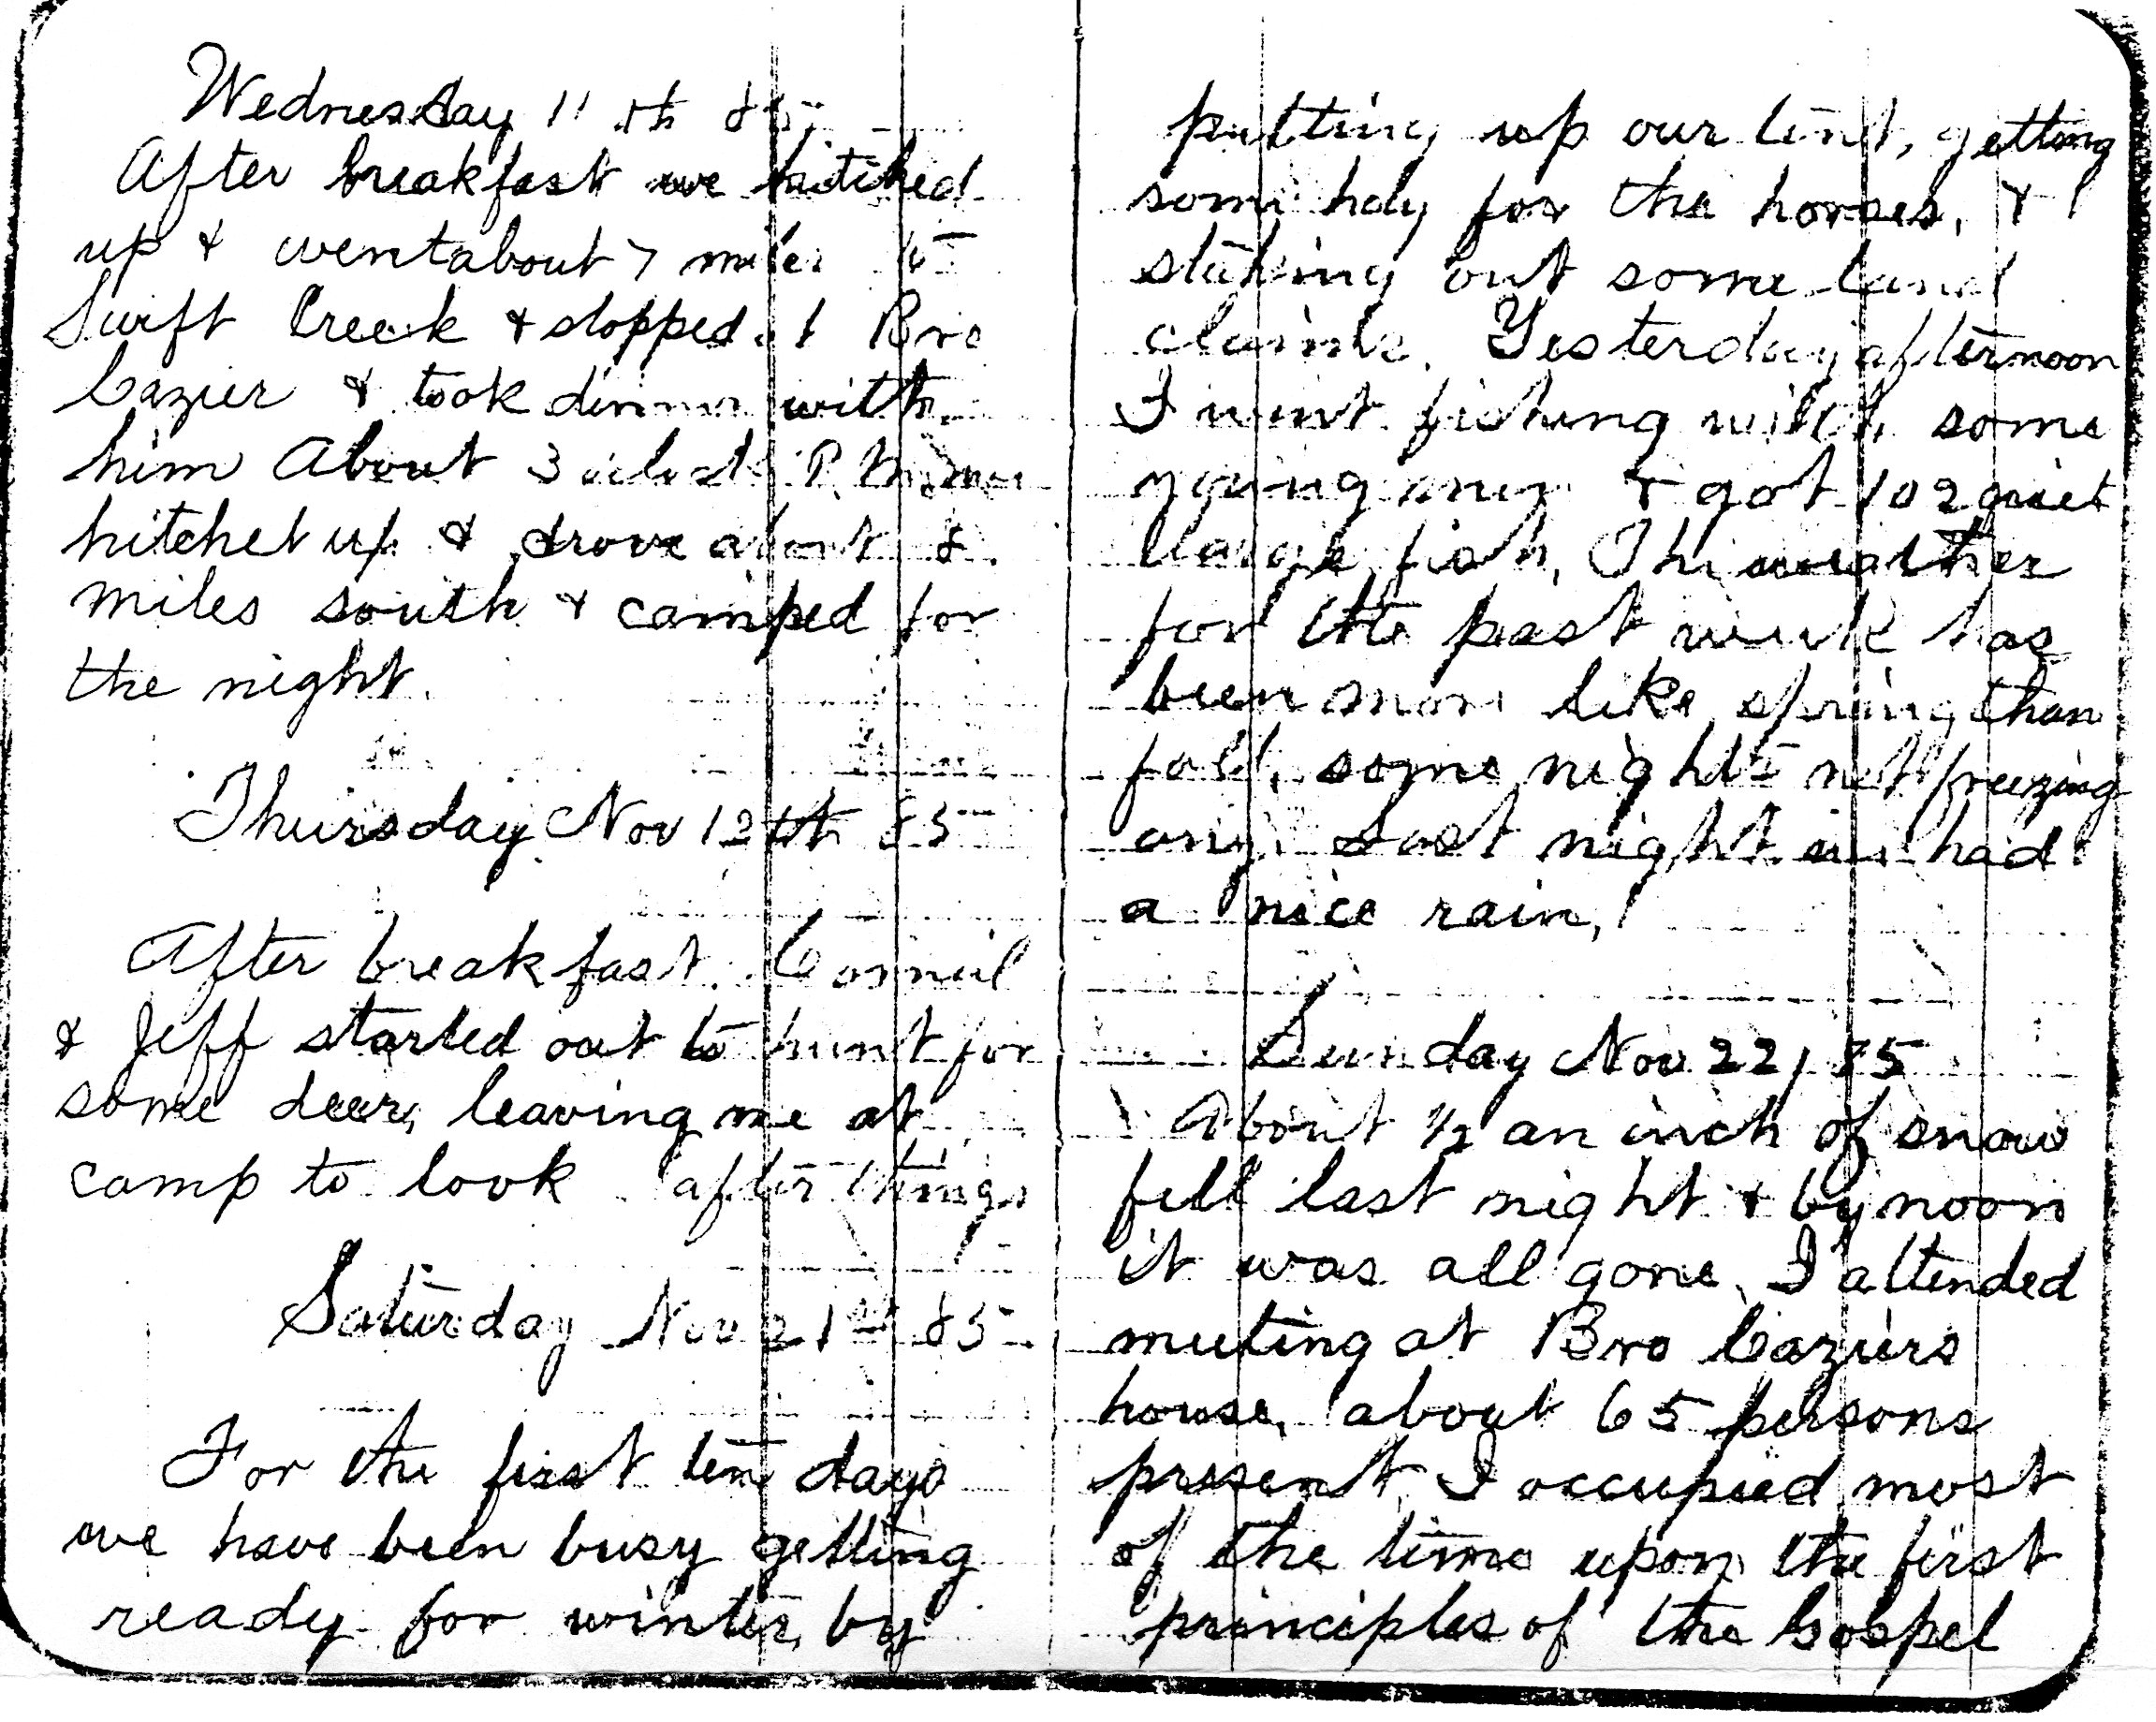 Wednesday 11th 85
After breakfast we hitched
up & went about 7 miles to
Swift Creek & stopped at Bro
Cazier & took dinner with
him About 3 oclock P.M. we
hitchet up & drove about 8
miles south & camped for
the night.
Thursday Nov 12th 85
After breakfast
& Jeff started out to hunt for
some deer, leaving me at
camp to look after things
Saturday Nov 21st 85
For the first ten days
we have been busy getting
ready for winter, by
putting up our tent, getting
some hay for the horses, &
staking out some land
claims. Yesterday afternoon
I went fishing with some
young men & got 102
large fish, The weather
for the past week has
been more like spring than
fall, some nights not freezing
any. Last night we had
a nice rain,
Sunday Nov 22, 85
About ½ an inch of snow
fell last night & by noon
it was all gone, I attended
meeting at Bro Caziers
house, about 65 persons
present, I occupied most
of the time upon the first
principles of the Gospel